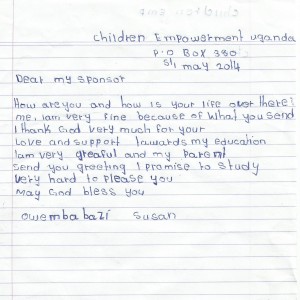 Children Empowerment Uganda
P.O BOX 380
5th may 2014
Dear my Sponsor
How are you and how is your life over there!
me, iam very fine because of what you send
I thank God very much for your
Love and support towards my education
Iam very greaful and my Parent
send you greeting I promise to study
very hard to please you
may God bless you
Owembabazi Susan